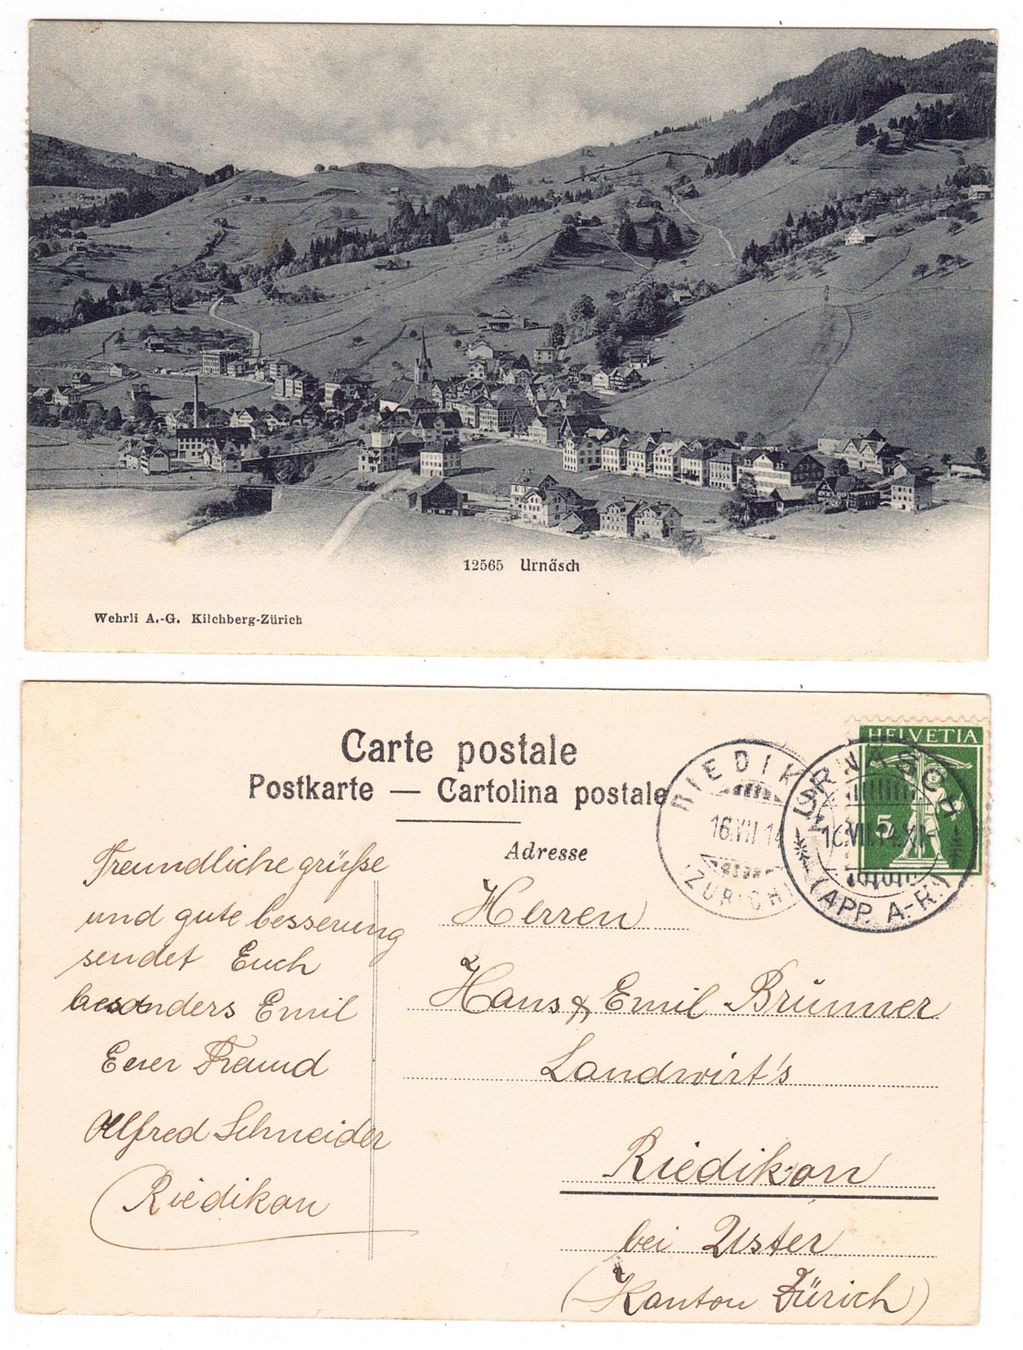 12565 Urnäsch
Wehrli A.-G. Kilchberg-Zürich
Carte postale
Postkarte — Cartolina postale
Adresse
RIEDIKON
16.VII.14
(ZÜRICH)
HELVETIA
5
URNÄSCH
16.VII.14.XI-
(APP. A-R.)
Freundliche grüsse
und gute besserung
sendet Euch
besonders Emil
Euer Freund
Alfred Schneider
Riedikon
Herren
Hans & Emil Brünner
Landwirt's
Riedikon
bei Uster
(Kanton Zürich)